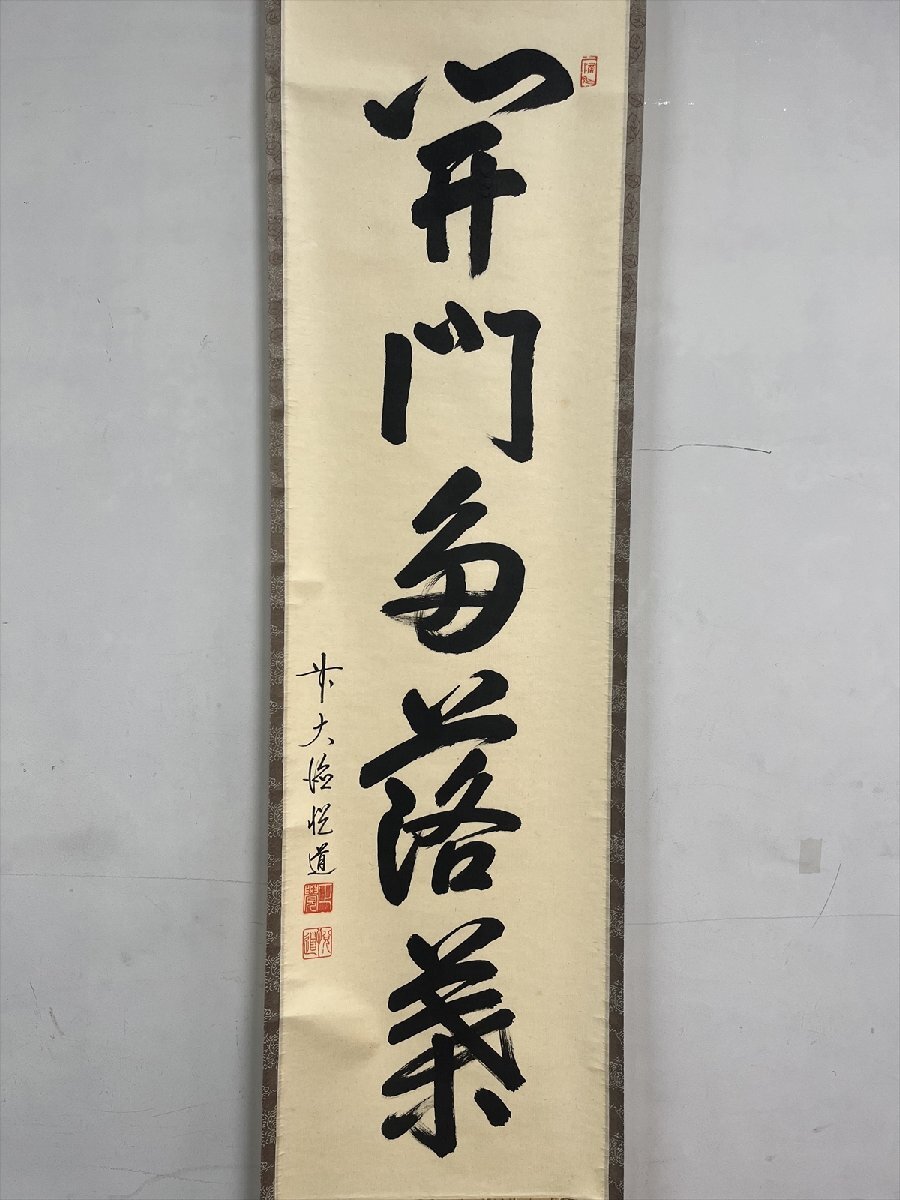 開門多落葉
前大徳悦道